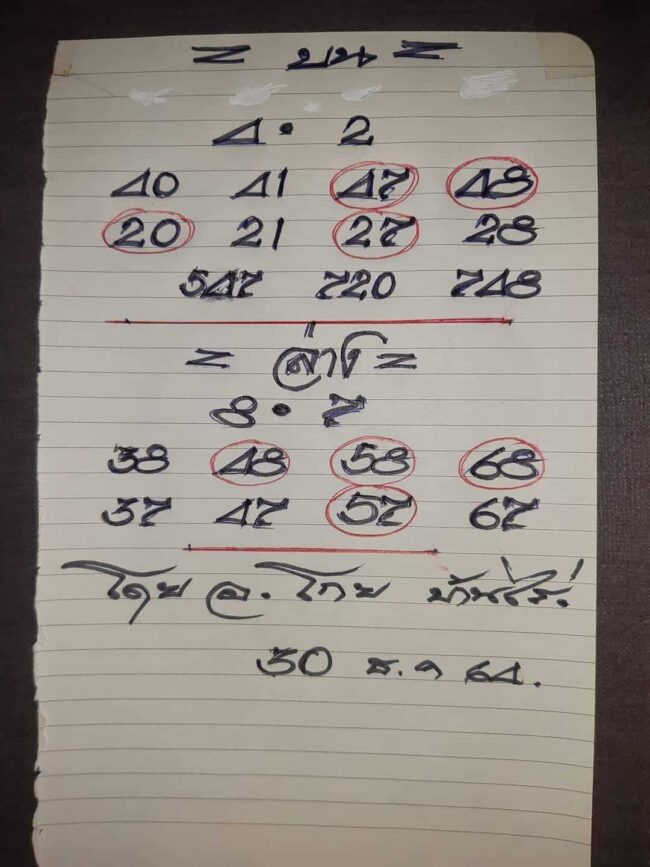 = บน =
4 • 2
40 41 47 48
20 21 27 28
547 720 748
= ล่าง =
8 • 7
38 48 58 68
37 47 57 67
โดย อ. โกย บ้านไร่.
30 ธ.ค 64.